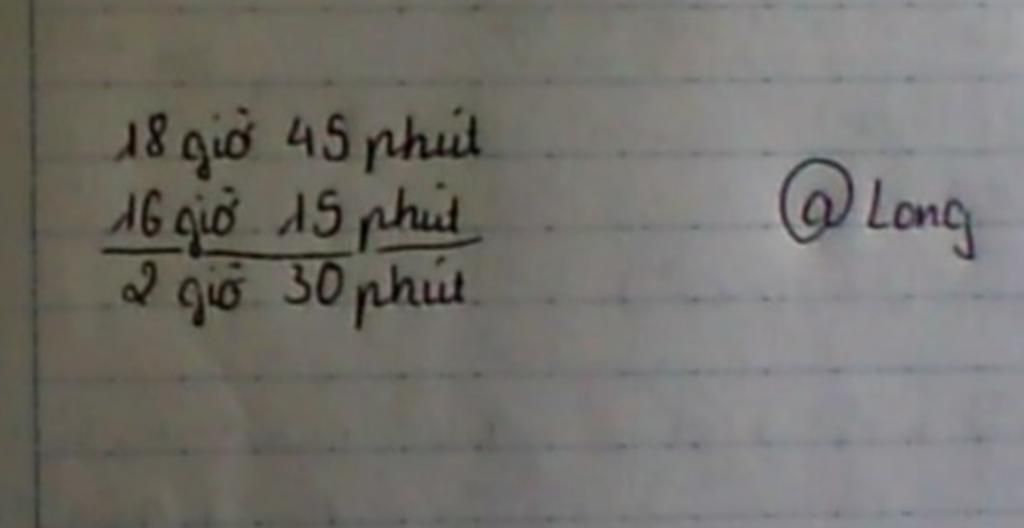 18 giờ 45 phút
16 giờ 15 phút
2 giờ 30 phút
@ Long